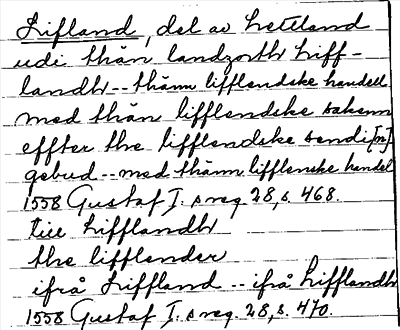 Lifland, del av Lettland
udi thän landzorth Liff-
landh -- thänn lifflendske handell
med thän lifflendske saken
effter the lifflendske sendi[n]
gebud -- med thänn lifflenske handel
1558 Gustaf I. s reg. 28, s. 468.
till Lifflandh
the lifflender
ifrå Liffland -- ifrå Lifflandh
1558 Gustaf I. s reg. 28, s. 470.